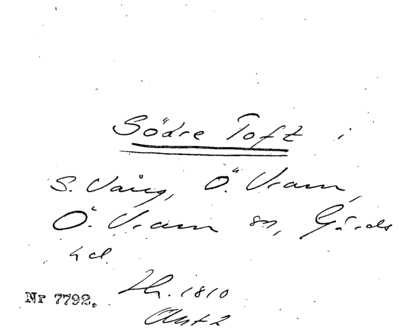 Södre Toft i
S. Vång, Ö. Vram,
Ö. Vram sn, Gärds
hd.
Nr 7792. Lh. 1810
Akt 2